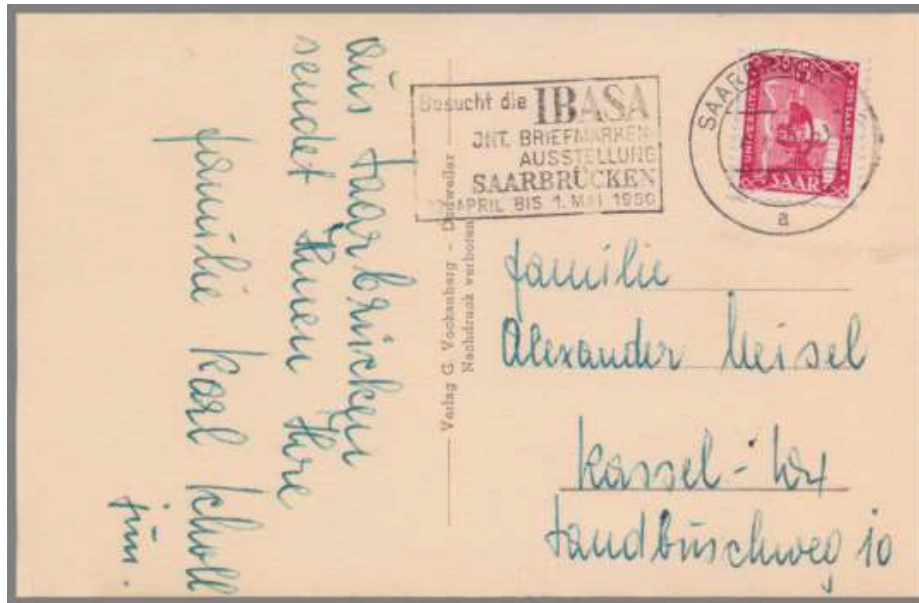 Aus Saarbrücken
sendet Ihnen Ihre
Familie Karl Scholl
jun.
Verlag G. Vockenberg - Dudweiler
Nachdruck verboten
Besucht die IBASA
JNT. BRIEFMARKEN
AUSSTELLUNG
SAARBRÜCKEN
APRIL BIS 1. MAI 1950
SAARBRÜCKEN
a
UNIVERSITÄT DES SAARLANDES
SAAR
Familie
Alexander Meisel
Kassel-
Sandbuschweg 10